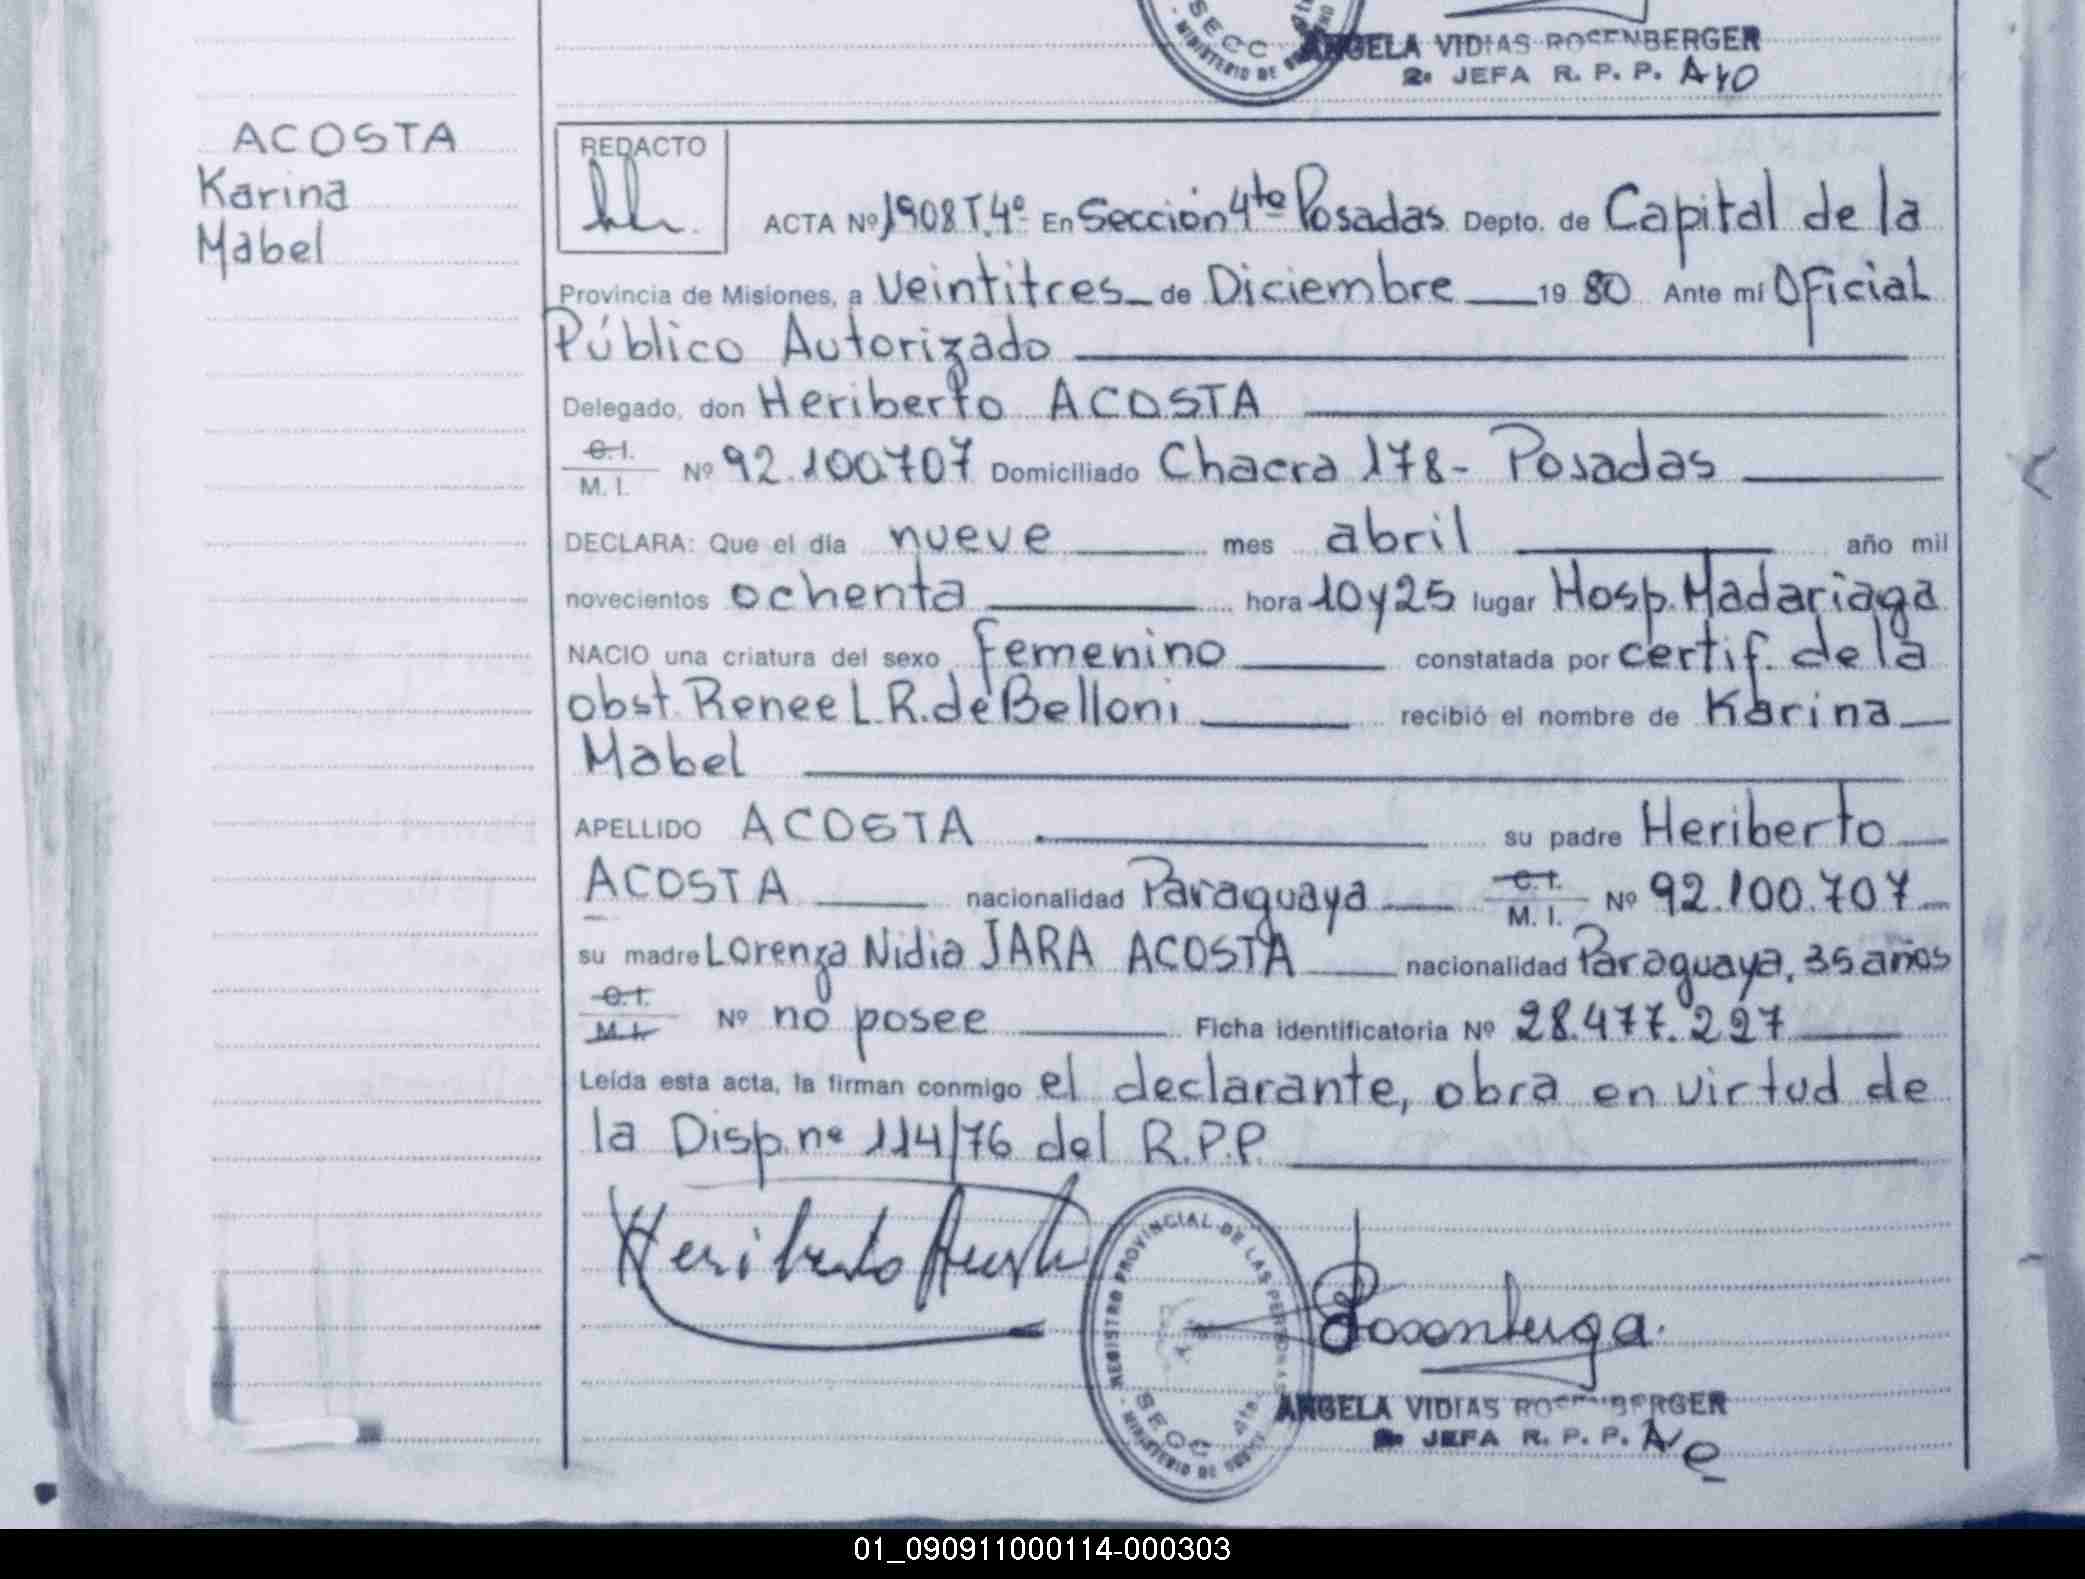 SECC 4ta
MINISTERIO DE
ANGELA VIDIAS ROSENBERGER
2a JEFA R. P. P. A/O
ACOSTA
Karina
Mabel
REDACTO
ACTA Nº 1908 T.4º En Sección 4ta Posadas Depto. de Capital de la
Provincia de Misiones, a veintitres de Diciembre 1980 Ante mí Oficial
Público Autorizado
Delegado, don Heriberto ACOSTA
C.I. / M.I. Nº 92.100.707 Domiciliado Chacra 178- Posadas
DECLARA: Que el día nueve mes abril año mil
novecientos ochenta hora 10y25 lugar Hosp. Madariaga
NACIO una criatura del sexo Femenino constatada por certif. de la
obst. Renee L.R. de Belloni recibió el nombre de Karina
Mabel
APELLIDO ACOSTA su padre Heriberto
ACOSTA nacionalidad Paraguaya C.I. / M.I. Nº 92.100.707
su madre Lorenza Nidia JARA ACOSTA nacionalidad Paraguaya, 35 años
C.I. / M.I. Nº no posee Ficha identificatoria Nº 28.477.227
Leída esta acta, la firman conmigo el declarante, obra en virtud de
la Disp. nº 114/76 del R.P.P.
Heriberto Acosta
REGISTRO PROVINCIAL DE LAS PERSONAS
SECC 4ta
MINISTERIO DE
Rosenberger
ANGELA VIDIAS ROSENBERGER
2a JEFA R. P. P.
01_090911000114-000303